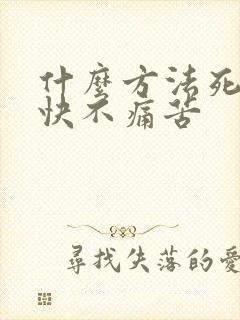 什麼方法死
快不痛苦
尋找失落的愛